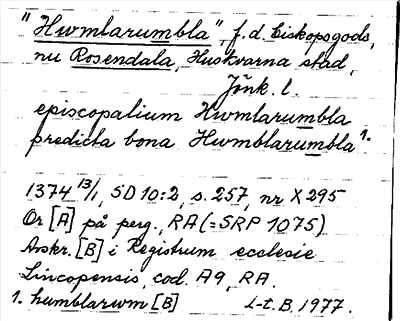 "Hwmlarumbla", f.d. biskopsgods,
nu Rosendala, Huskvarna stad,
Jönk. l.
episcopalium Hwmlarumbla
predicta bona Hwmblarumbla 1.
1374 13/1, SD 10:2, s. 257, nr X 295
Or [A] på perg., RA (=SRP 1075)
Avskr. [B] i Registrum ecclesie
Lincopensis, cod. A9, RA.
1. humblarwm [B] L-t. B. 1977.